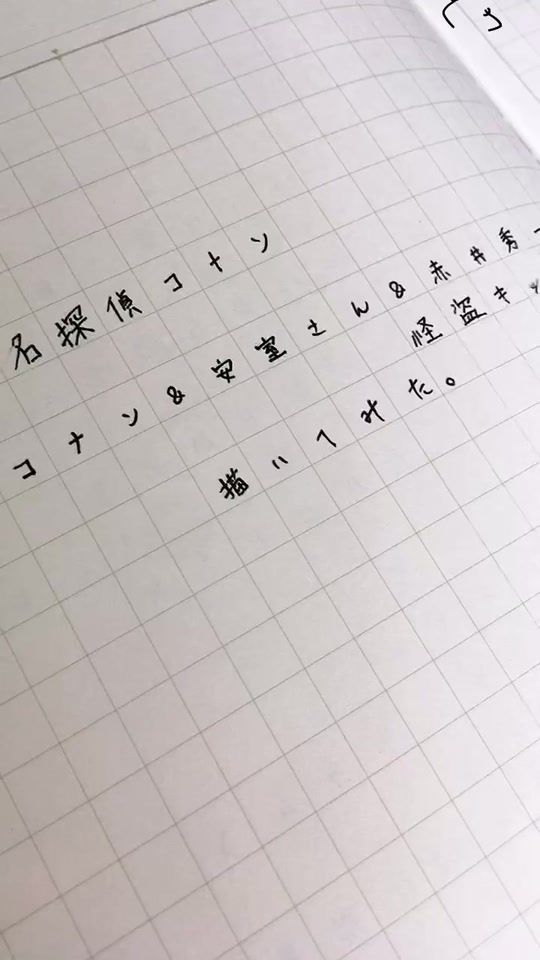 名探偵コナン
コナン&安室さん&赤井秀一
怪盗キッ
描いてみた。